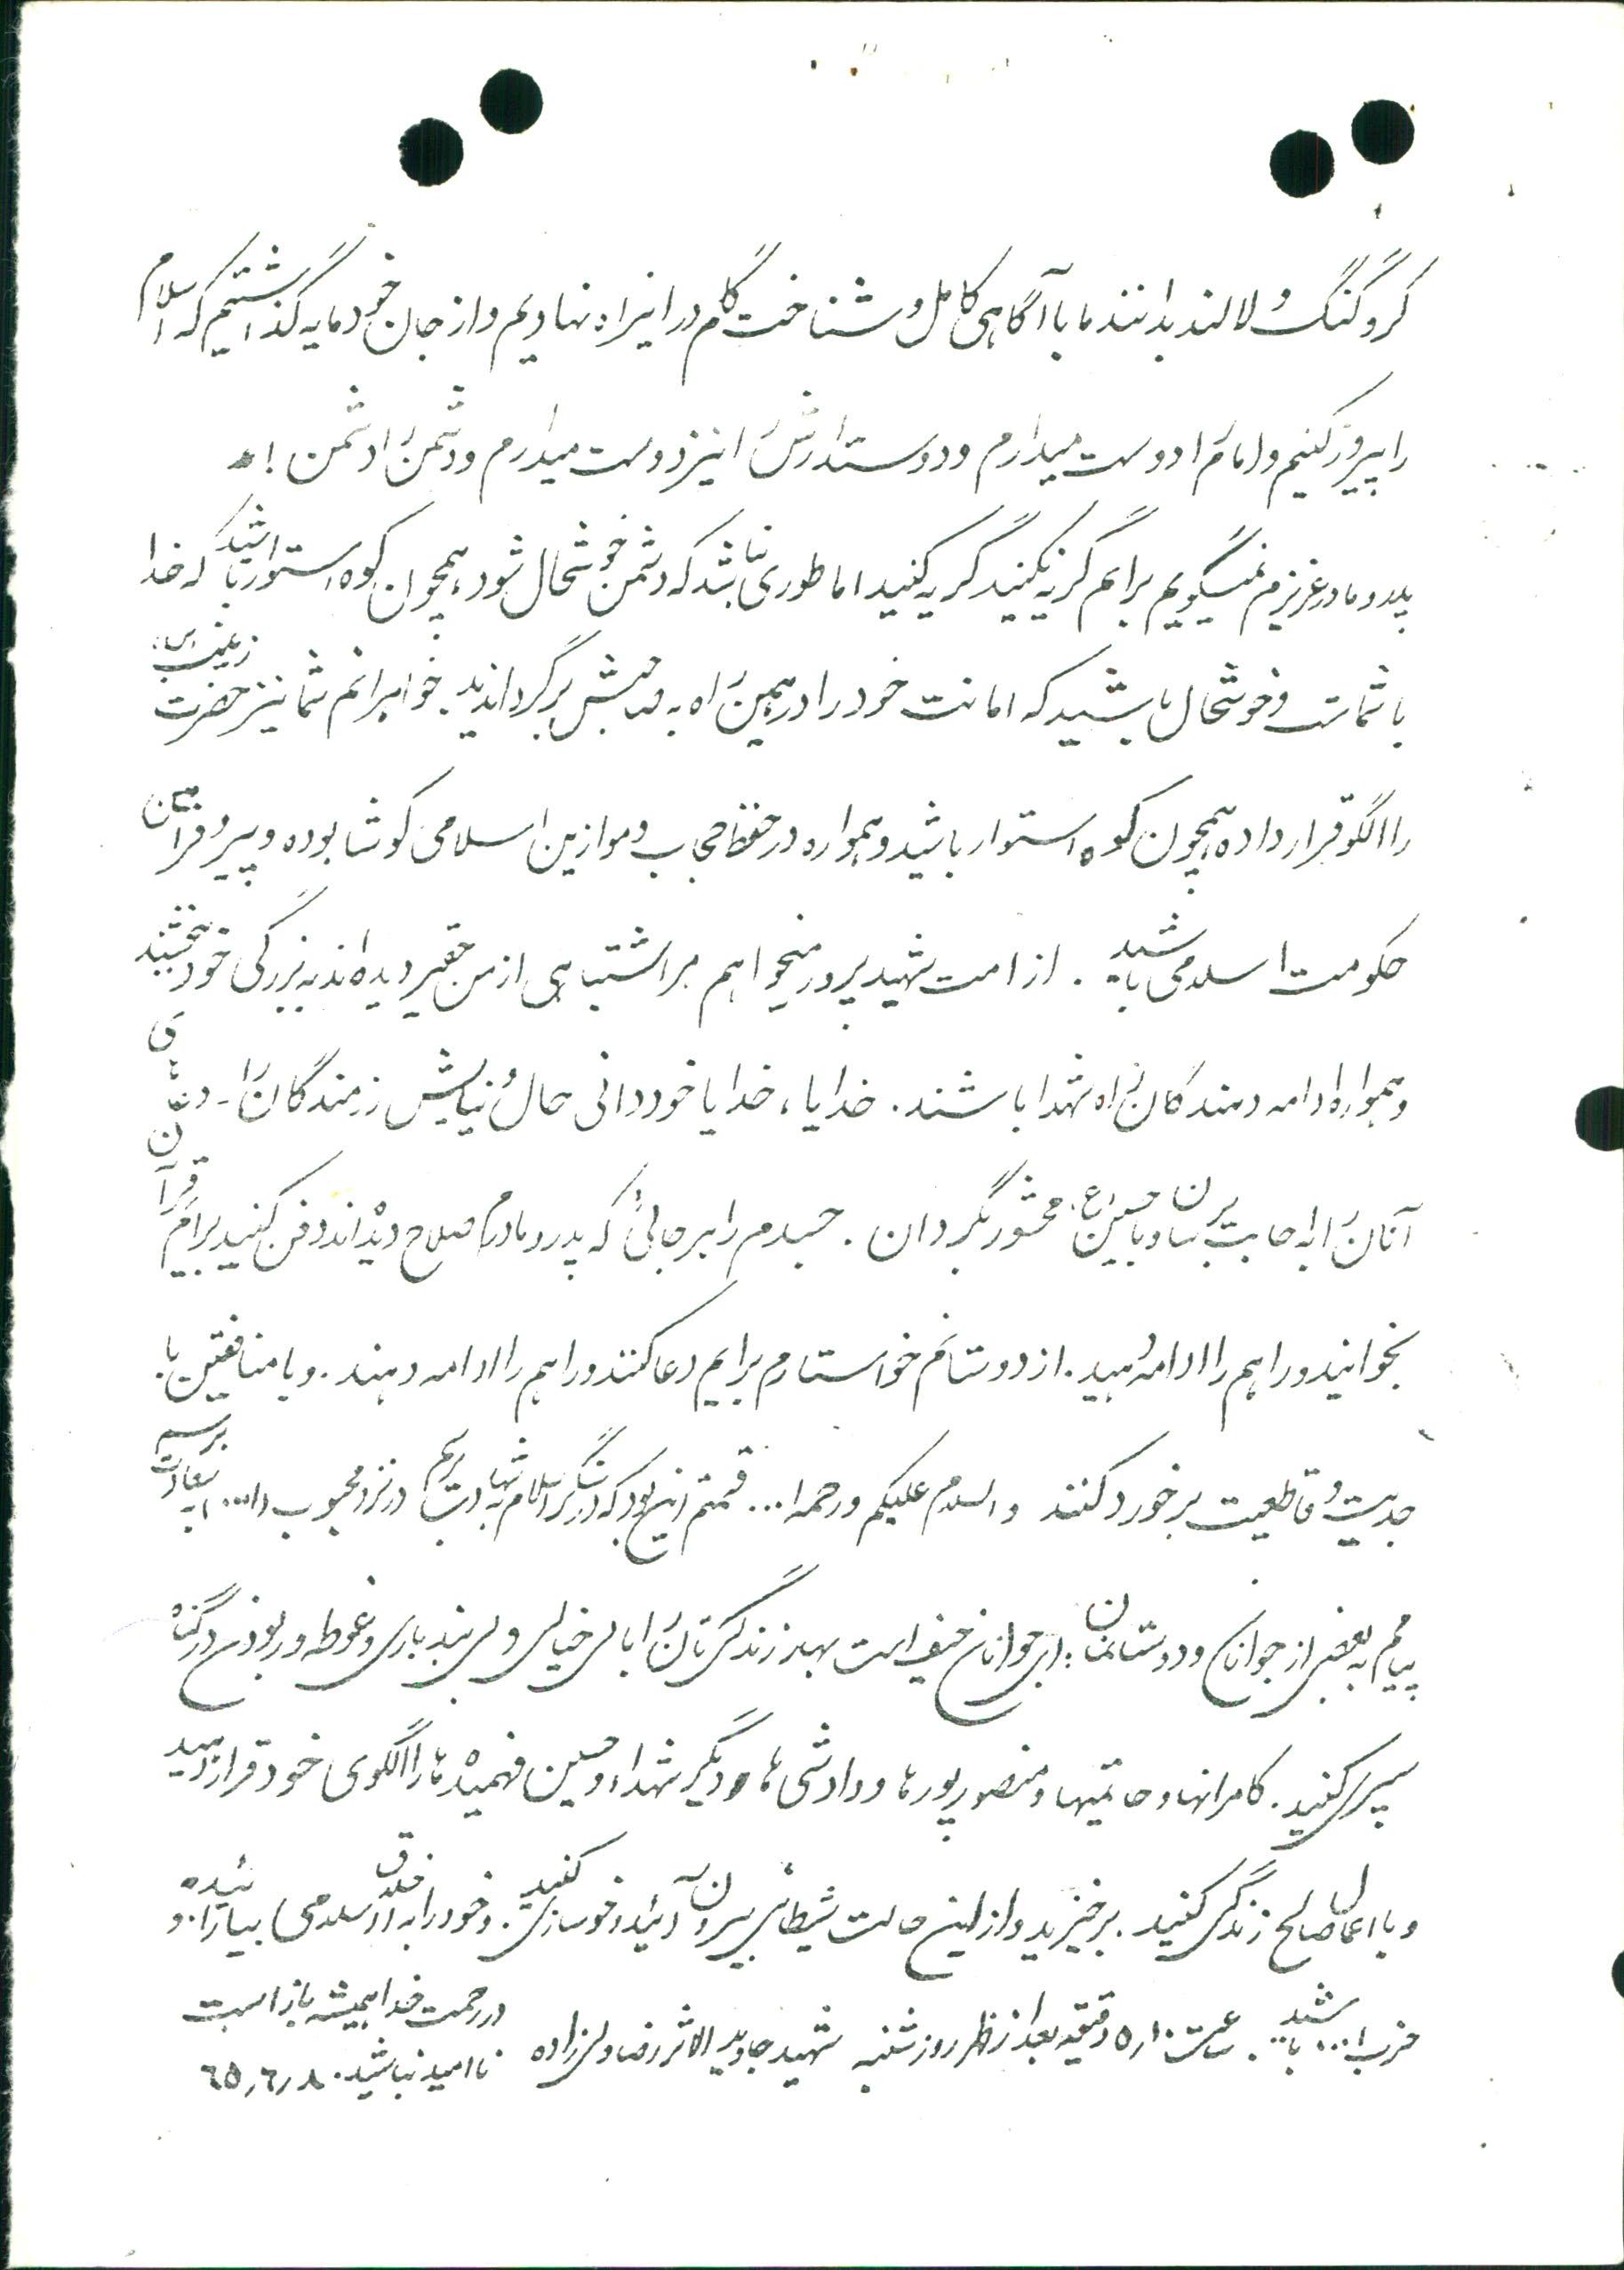 کر و گنگ و لالند بدانند ما با آگاهی کامل و شناخت گام در اینراه نهادیم و از جان خود مایه گذاشتیم که اسلام
را پیروز کنیم و امام را دوست میدارم و دوستدارش را نیز دوست میدارم و دشمن را دشمن !
پدر و مادر عزیزم نمیگویم برایم گریه نکنید گریه کنید اما طوری نباشد که دشمن خوشحال شود همچون کوه استوار باشید که خدا
با شماست و خوشحال باشید که امانت خود را در همین راه به صاحبش برگرداندید خواهرانم شما نیز حضرت زینب (س)
را الگو قرار داده همچون کوه استوار باشید و همواره در حفظ حجاب و موازین اسلامی کوشا بوده و پیرو فرامین
حکومت اسلامی باشید . از امت شهید پرور میخواهم هر اشتباهی از من حقیر دیده‌اند به بزرگی خود ببخشند
و همواره ادامه دهندگان راه شهدا باشند . خدایا ، خدایا خود دانی حال و نیایش رزمندگان را -
آنان را به اجابت برسان و با حسین (ع) محشور بگردان . جسدم را هر جائی که پدر و مادرم صلاح دیدند دفن کنید برایم قرآن
بخوانید و راهم را ادامه دهید . از دوستانم خواستارم برایم دعا کنند و راهم را ادامه دهند . و با منافقین با
جدیت و قاطعیت برخورد کنند والسلام علیکم و رحمه ا... قسمتم این بود که در سنگر اسلام به شهادت برسم در نزد محبوب والا... به سعادت برسم
پیامم به بعضی از جوانان و دوستانمان : ای جوانان حیف است بهار زندگی‌تان را با بی خیالی و بی بند باری و غوطه ور بودن در گناه
سپری کنید . کامرانها و حاتمیها و منصورپورها و دادشی ها و دیگر شهداء و حسین فهمیده ها را الگوی خود قرار دهید
و با اعمال صالح زندگی کنید . برخیزید و از این حالت شیطانی بیرون آئید و خودسازی کنید . و خود را به اخلاق اسلامی بیارائید و
حزب ا... باشید . ساعت ۵٫۱۰ دقیقه بعد از ظهر روز شنبه شهید جاوید الاثر رضا ولی زاده
در رحمت خدا همیشه باز است
نا امید نباشید . ۶۵٫۶٫۸